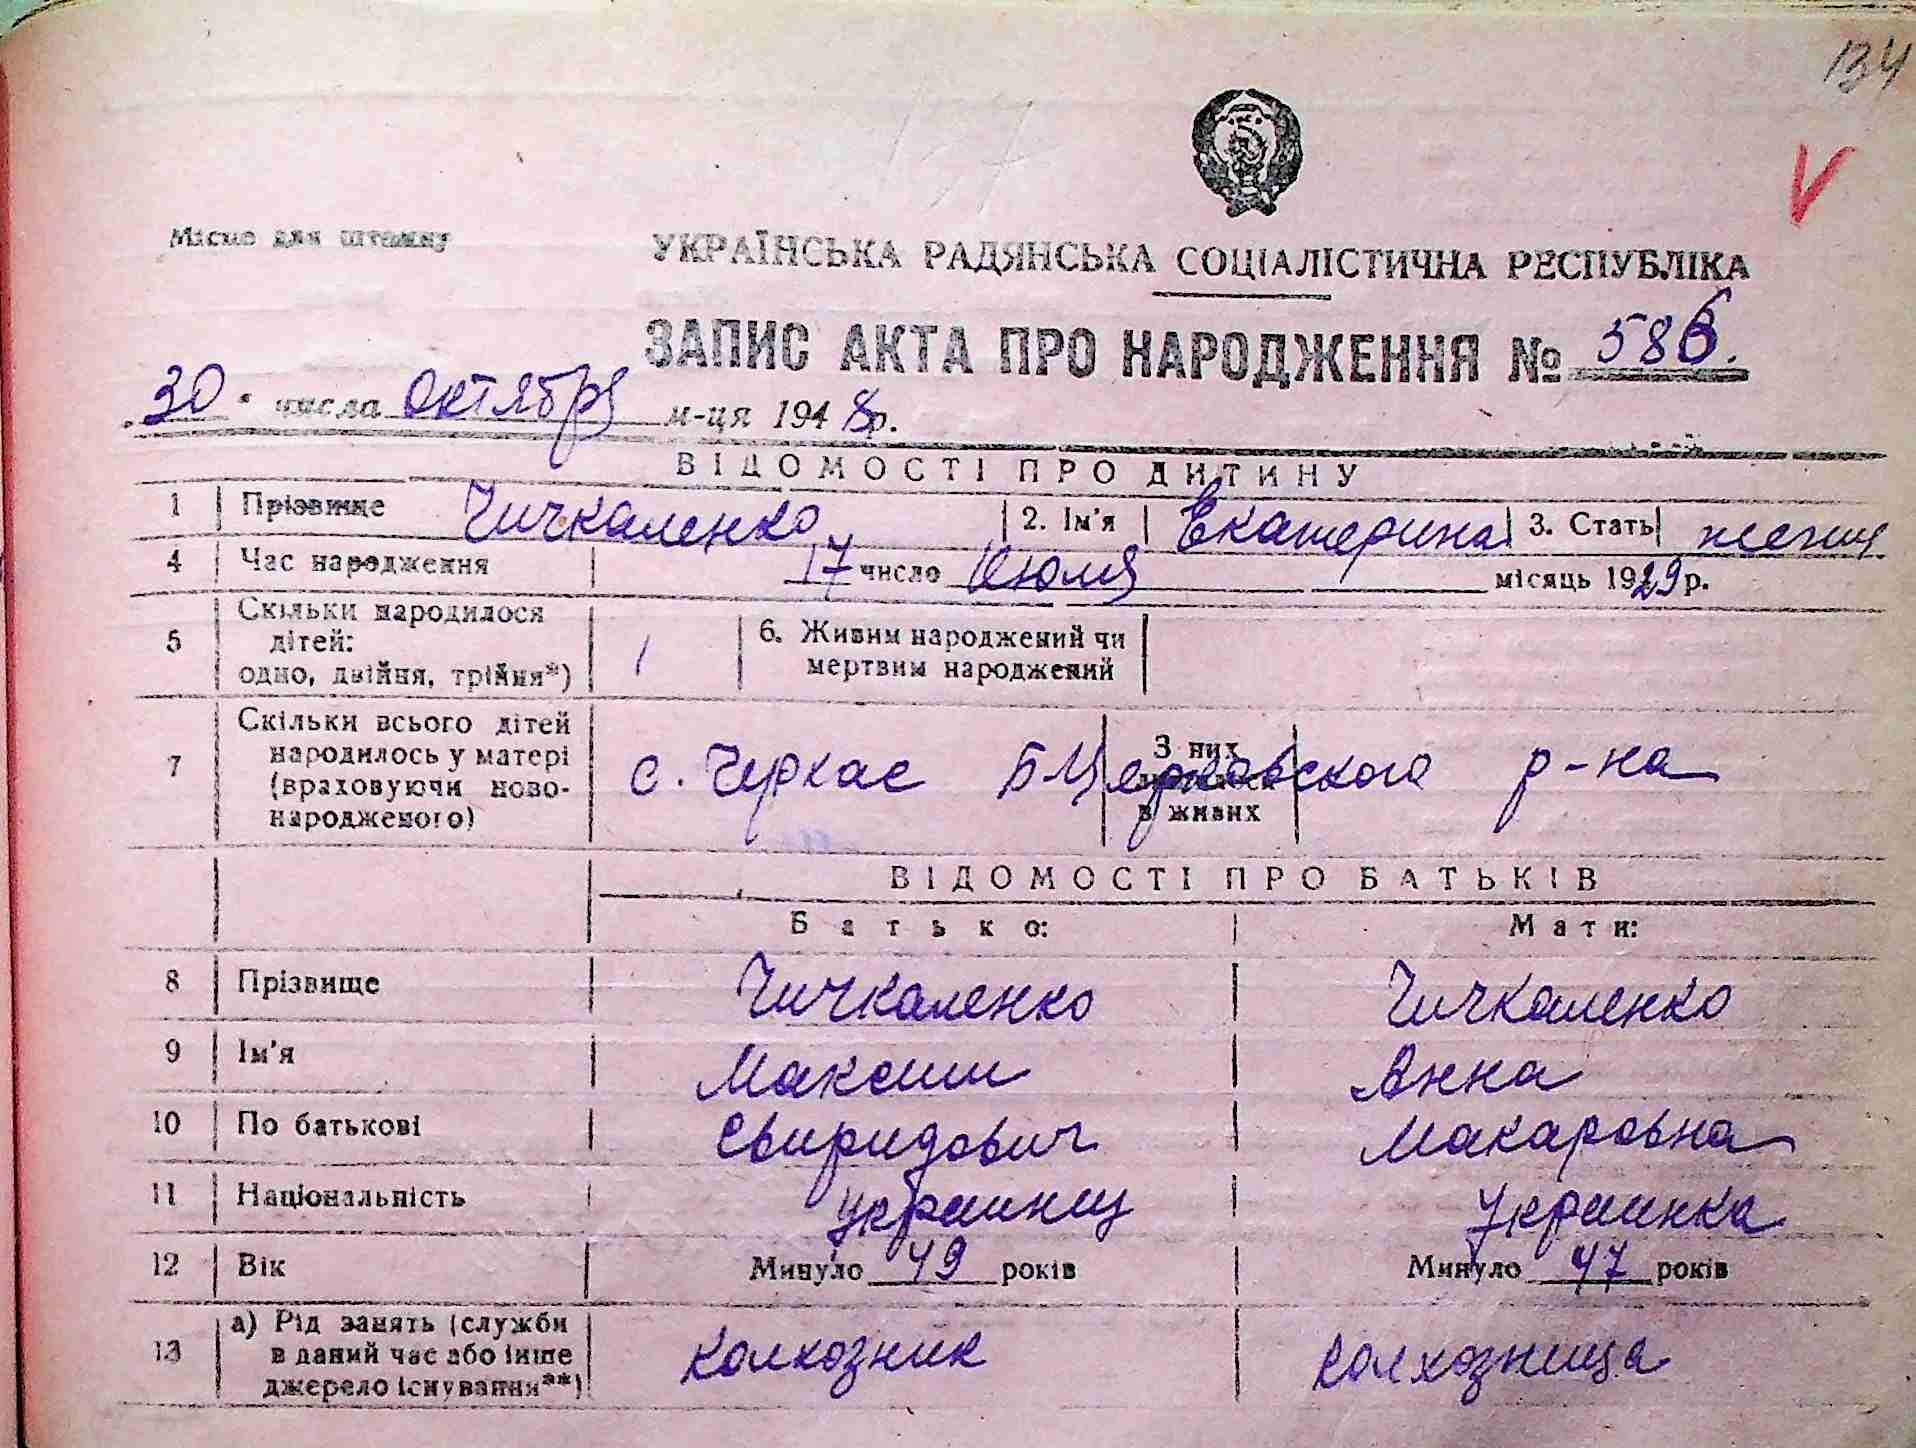 134
V
Місце для штампу
УКРАЇНСЬКА РАДЯНСЬКА СОЦІАЛІСТИЧНА РЕСПУБЛІКА
ЗАПИС АКТА ПРО НАРОДЖЕННЯ № 586.
30 числа октября м-ця 1948р.
ВІДОМОСТІ ПРО ДИТИНУ
1 Прізвище Чичкаленко 2. Ім'я Екатерина 3. Стать женщ
4 Час народження 17 число Июля місяць 1929 р.
5 Скільки народилося дітей: одно, двійня, трійня*) 1 6. Живим народжений чи мертвим народжений
7 Скільки всього дітей народилось у матері (враховуючи новонародженого) З них в живих
с. Черкас БЦерковского р-на
ВІДОМОСТІ ПРО БАТЬКІВ
Батько: Мати:
8 Прізвище Чичкаленко Чичкаленко
9 Ім'я Максим Анна
10 По батькові Свиридович Макаровна
11 Національність украинец Украинка
12 Вік Минуло 49 років Минуло 47 років
13 а) Рід занять (служби в даний час або інше джерело існування**) колхозник колхозница